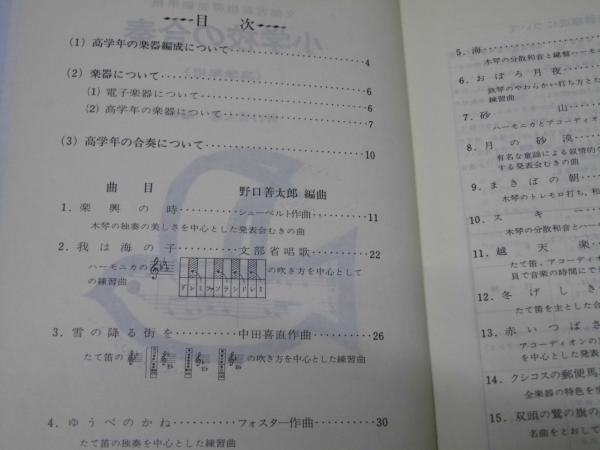 目次
(1) 高学年の楽器編成について………………4
(2) 楽器について………………6
(1) 電子楽器について………………6
(2) 高学年の楽器について………………7
(3) 高学年の合奏について………………10
曲目　野口善太郎 編曲
1. 楽興の時………シューベルト作曲………11
木琴の独奏の美しさを中心とした発表会むきの曲
2. 我は海の子………文部省唱歌………22
ハーモニカの　の吹き方を中心として
ド レ ミ ファ ソ ラ シ ド レ ミ
の練習曲
3. 雪の降る街を………中田喜直作曲………26
たて笛の　の吹き方を中心とした練習曲
4. ゆうべのかね………フォスター作曲………30
たて笛の独奏を中心とした練習曲
5. 海
木琴の分散和音と鍵盤ハーモ
6. おぼろ月夜
鉄琴のやわらかい打ち方と
練習曲
7. 砂山
ハーモニカとアコーディオン
8. 月の砂漠
有名な童謡による叙情的
する発表会むきの曲
9. まきばの朝
木琴のトレモロ打ち、和
10. スキー
木琴の分散和音とハー
11. 越天楽
たて笛、アコーディ
貝で音楽の時間にで
12. 冬げしき
たて笛を主とした合
13. 赤いつばさ
アコーディオンの
を中心とした発表
14. クシコスの郵便馬
全楽器の特色を
15. 双頭の鷲の旗の
名曲をとおして